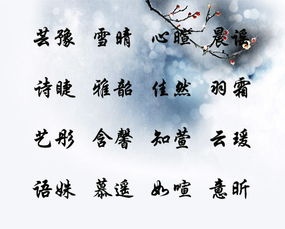 芸豫 雪晴 心瞳 晨谣
诗睫 雅韶 佳然 羽霜
艺彤 含馨 知萱 云瑗
语姝 慕遥 如喧 意昕